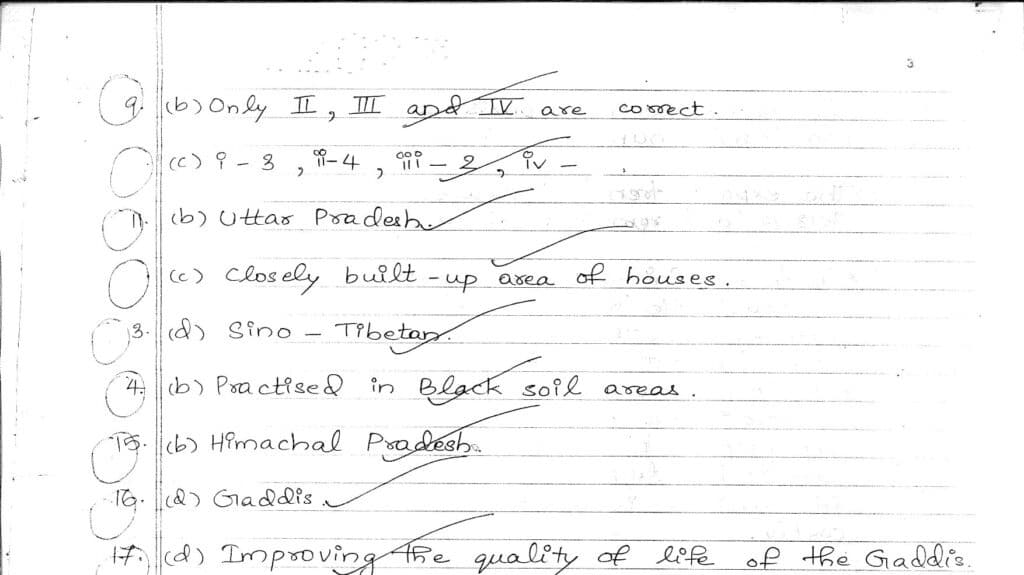 3
9. (b) Only II, III and IV are correct.
(c) i - 3, ii - 4, iii - 2, iv -
11. (b) Uttar Pradesh.
(c) Closely built-up area of houses.
3. (d) Sino - Tibetan.
4. (b) Practised in Black soil areas.
15. (b) Himachal Pradesh.
16. (d) Gaddis.
17. (d) Improving the quality of life of the Gaddis.